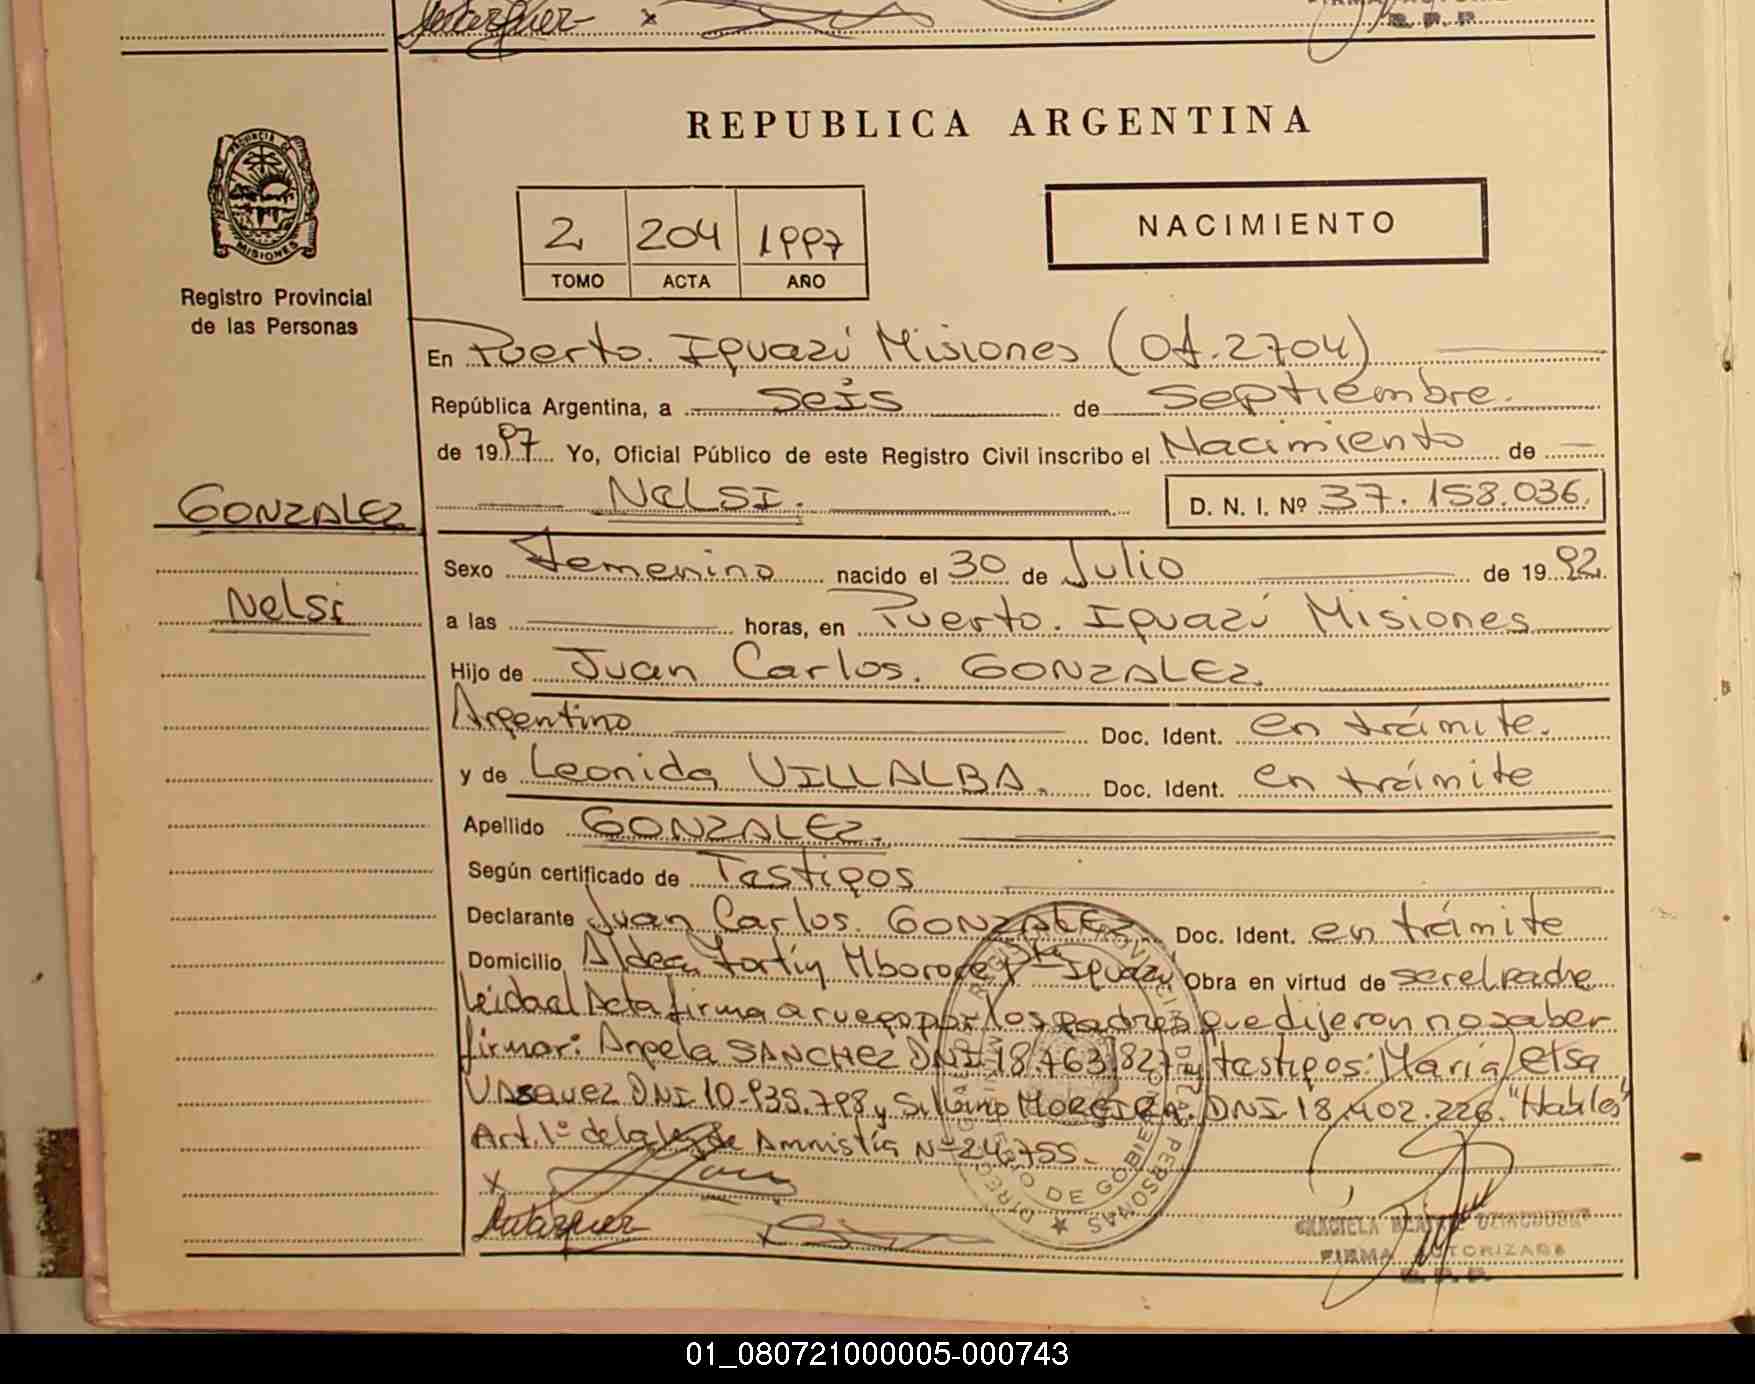 REPUBLICA ARGENTINA
PROVINCIA DE
MISIONES
Registro Provincial
de las Personas
2 204 1997
TOMO ACTA AÑO
NACIMIENTO
En Puerto. Iguazú Misiones (Of. 2704)
República Argentina, a seis de septiembre.
de 1997 Yo, Oficial Público de este Registro Civil inscribo el Nacimiento de
NELSI. D. N. I. Nº 37.158.036.
GONZALEZ
Nelsi
Sexo Femenino nacido el 30 de Julio de 1992.
a las horas, en Puerto. Iguazú Misiones
Hijo de Juan Carlos. GONZALEZ.
Argentino Doc. Ident. en trámite.
y de Leonida VILLALBA. Doc. Ident. en trámite
Apellido GONZALEZ.
Según certificado de Testigos
Declarante Juan Carlos. GONZALEZ. Doc. Ident. en trámite
Domicilio Aldea Fortín Mbororé Pto Iguazú Obra en virtud de ser el padre
leída el Acta firma a ruego por los padres que dijeron no saber
firmar: Angela SANCHEZ DNI 18.763.827 y testigos: María Elsa
VASQUEZ DNI 10.935.798 y Silvino MOREIRA. DNI. 18.402.226. "Habiles"
Art. 1º de la ley de Amnistía Nº 24.755.-
x
x
GRACIELA
FIRMA AUTORIZADA
R. P. P.
01_080721000005-000743